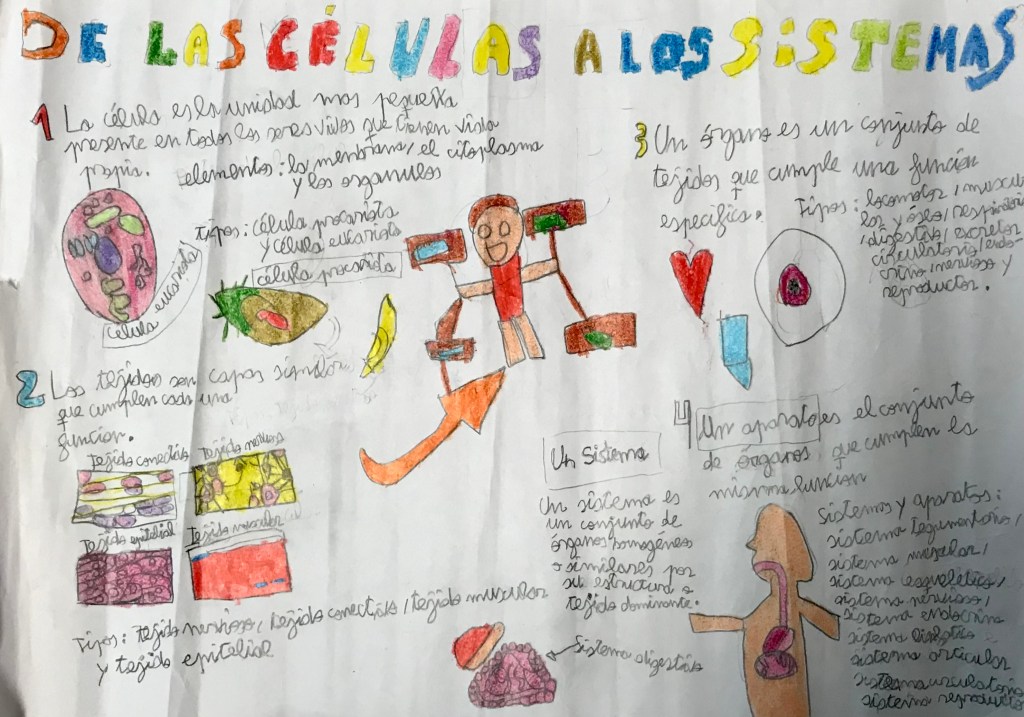 DE LAS CÉLULAS A LOS SISTEMAS
1 La célula es la unidad mas pequeña
presente en todos los seres vivos que tienen vida
propia.
elementos: la membrana, el citoplasma
y los organulos
Tipos: célula procariota
y célula eukariota
célula eukariota
célula procariota
2 Los tejidos son capas similar
que cumplen cada una
funcion.
Tejido conectivo
Tejido nervioso
Tejido epitelial
Tejido muscular
Tipos: tejido nervioso, tejido conectivo, tejido muscular
y tejido epitelial
3 Un órgano es un conjunto de
tejidos que cumple una función
especifica.
Tipos: locomotor, muscu
lar y óseo, respiratorio
, digestivo, excretor
circulatorio, endo
crino, nervioso y
reproductor.
4 Un aparato es el conjunto
de órganos que cumplen la
misma funcion
Un Sistema
Un sistema es
un conjunto de
órganos homogéneos
o similares por
su estructura o
tejido dominante.
Sistema digestivo
Sistemas y aparatos:
sistema tegumentario,
sistema muscular,
sistema esquelético,
sistema nervioso,
sistema endocrino
sistema
sistema articular
sistema circulatorio
sistema reproductor